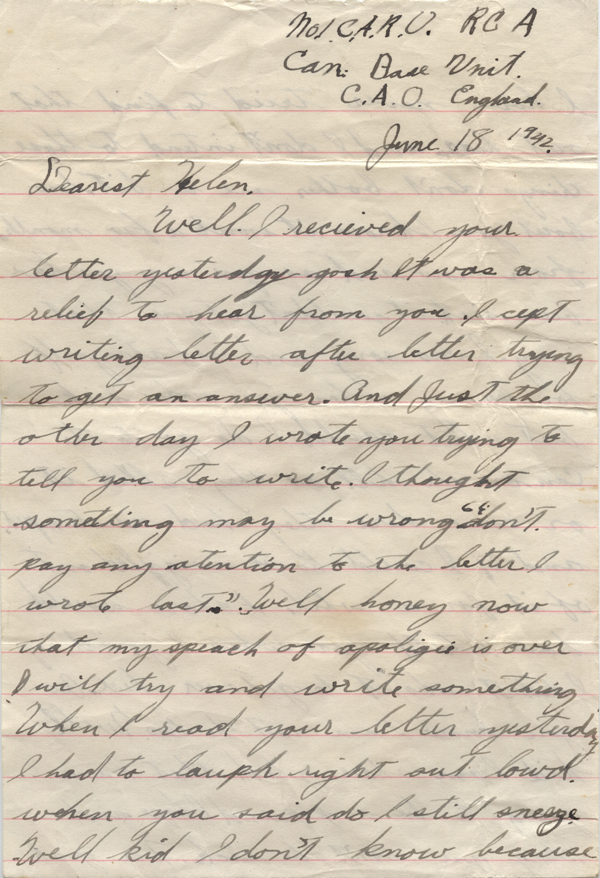 No1. C.A.R.U. RCA
Can. Base Unit.
C.A.O. England.
June 18 1942.
Dearest Helen,
Well. I recieved your
letter yesterdgy gosh It was a
relief to hear from you. I cept
writing letter after letter trying
to get an answer. And Just the
other day I wrote you trying to
tell you to write. I thought
something may be wrong "don't.
pay any atention to the letter I
wrote last.". Well honey now
that my speach of apoligie is over
I will try and write something
When I read your letter yesterday
I had to laugh right out lowd.
when you said do I still sneeze
Well kid I don't know because